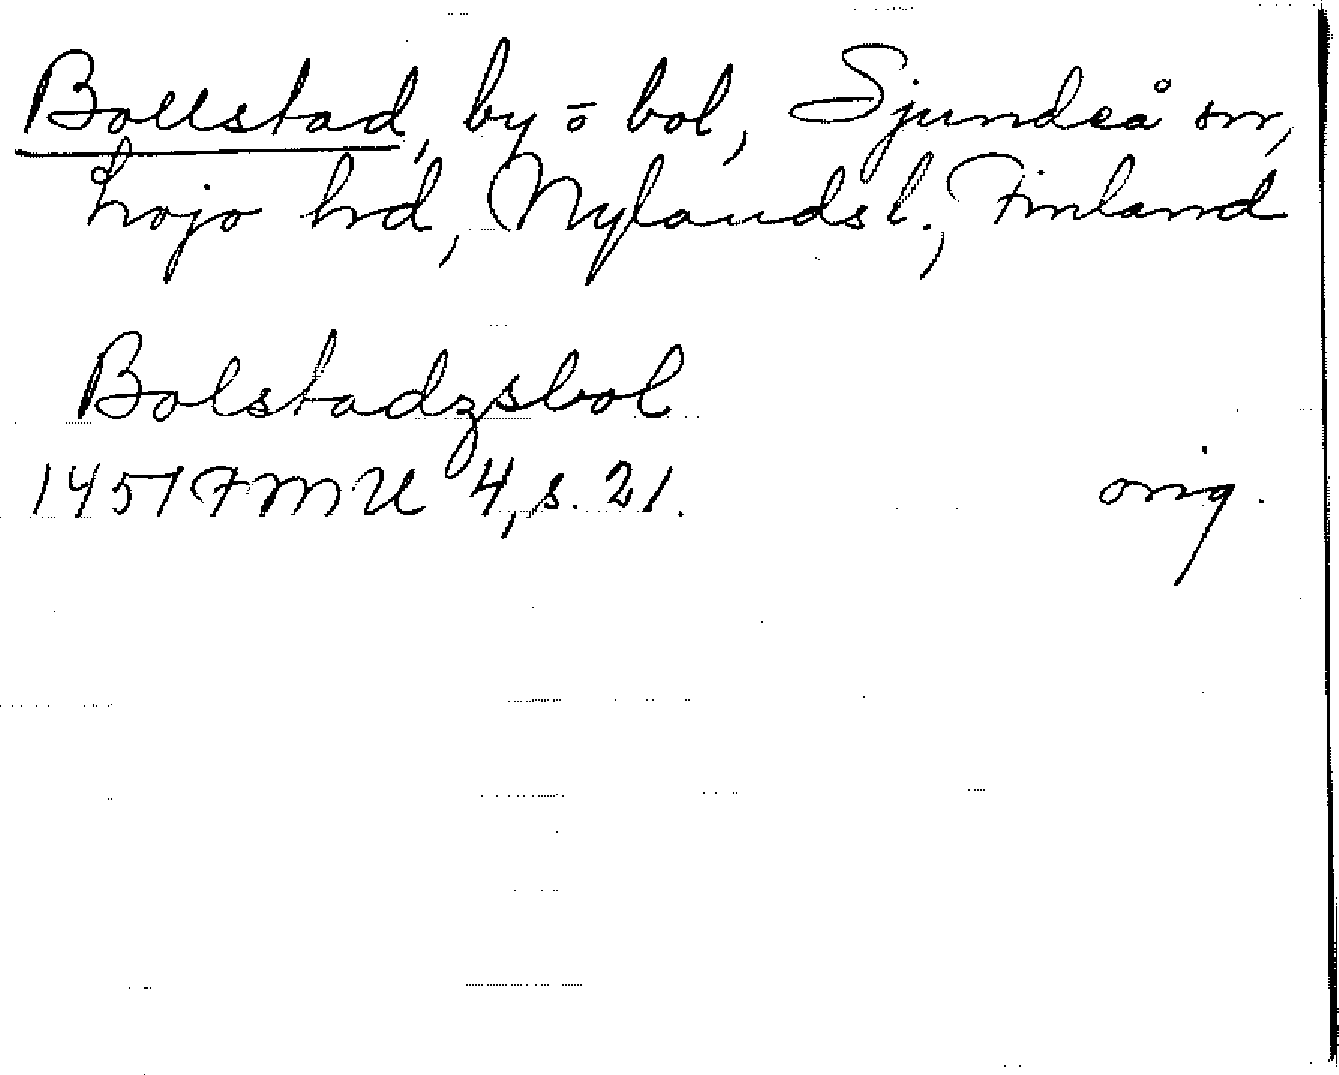 Bollstad, by o bol, Sjundeå sn,
Lojo hrd, Nylands l., Finland
Bolstadzsbol
1451 FMU 4, s. 21. orig.